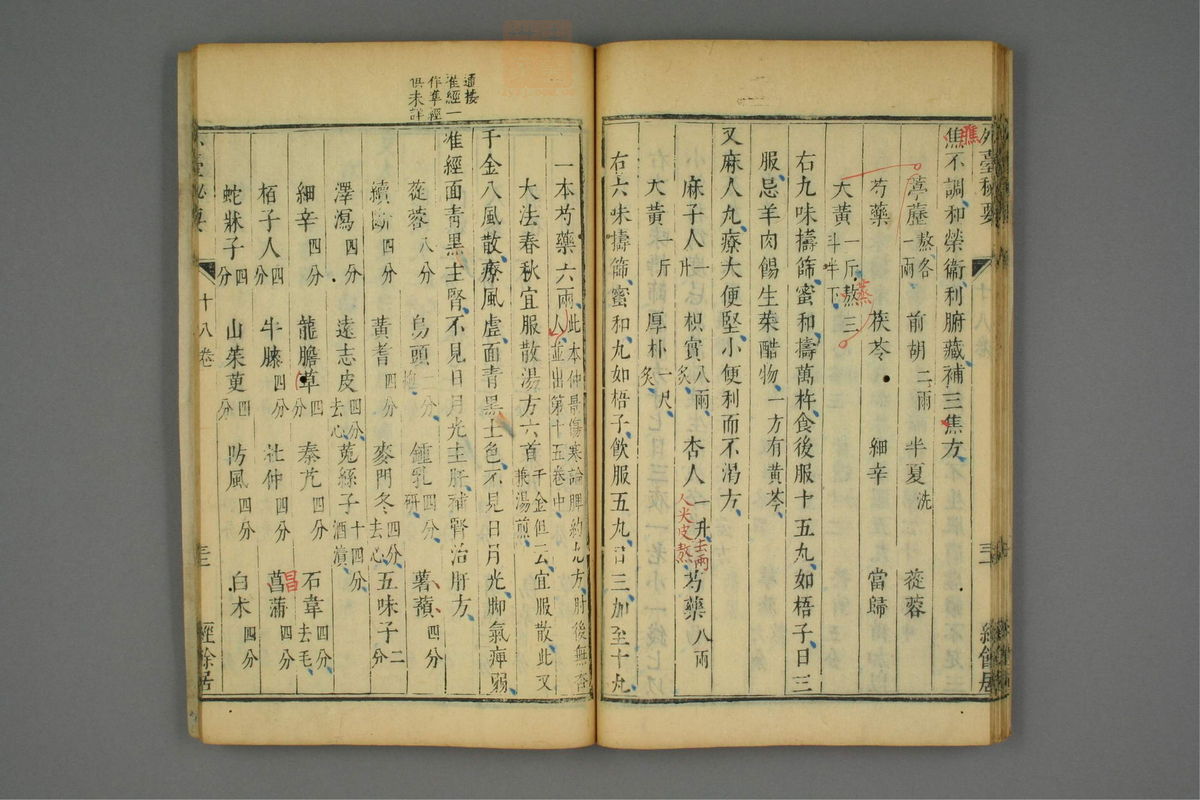 外臺秘要
十八卷
三十二
經餘居
焦不調和榮衛利腑藏補三焦方
葶藶熬各一兩 前胡二兩 半夏洗 蓯蓉
芍藥 茯苓 細辛 當歸
大黃一斤熬三斗半下
右九味擣篩蜜和擣萬杵食後服十五丸如梧子日三
服忌羊肉餳生菜酷物一方有黃芩
又麻人丸療大便堅小便利而不渴方
麻子人一升 枳實八兩炙 杏人一升 芍藥八兩
去兩人尖皮熬
大黃一斤 厚朴一尺炙
右六味擣篩蜜和丸如梧子飲服五丸日三加至十丸
一本芍藥六兩此本仲景傷寒論脾約丸方肘後無杏人並出第十五卷中
大法春秋宜服散湯方六首千金但云宜服散此又兼湯煎
千金八風散療風虛面青黑土色不見日月光脚氣痺弱
准經面青黑主腎不見日月光主肝補腎治肝方
蓯蓉八分 烏頭二分炮 鍾乳四分研 薯蕷四分
續斷四分 黃耆四分 麥門冬四分去心 五味子二分
澤瀉四分 遠志皮四分去心 菟絲子十四分酒漬
細辛四分 龍膽草四分 秦艽四分 石韋四分去毛
栢子人四分 牛膝四分 杜仲四分 菖蒲四分
蛇牀子四分 山茱萸四分 防風四分 白朮四分
外臺秘要
十八卷
經餘居